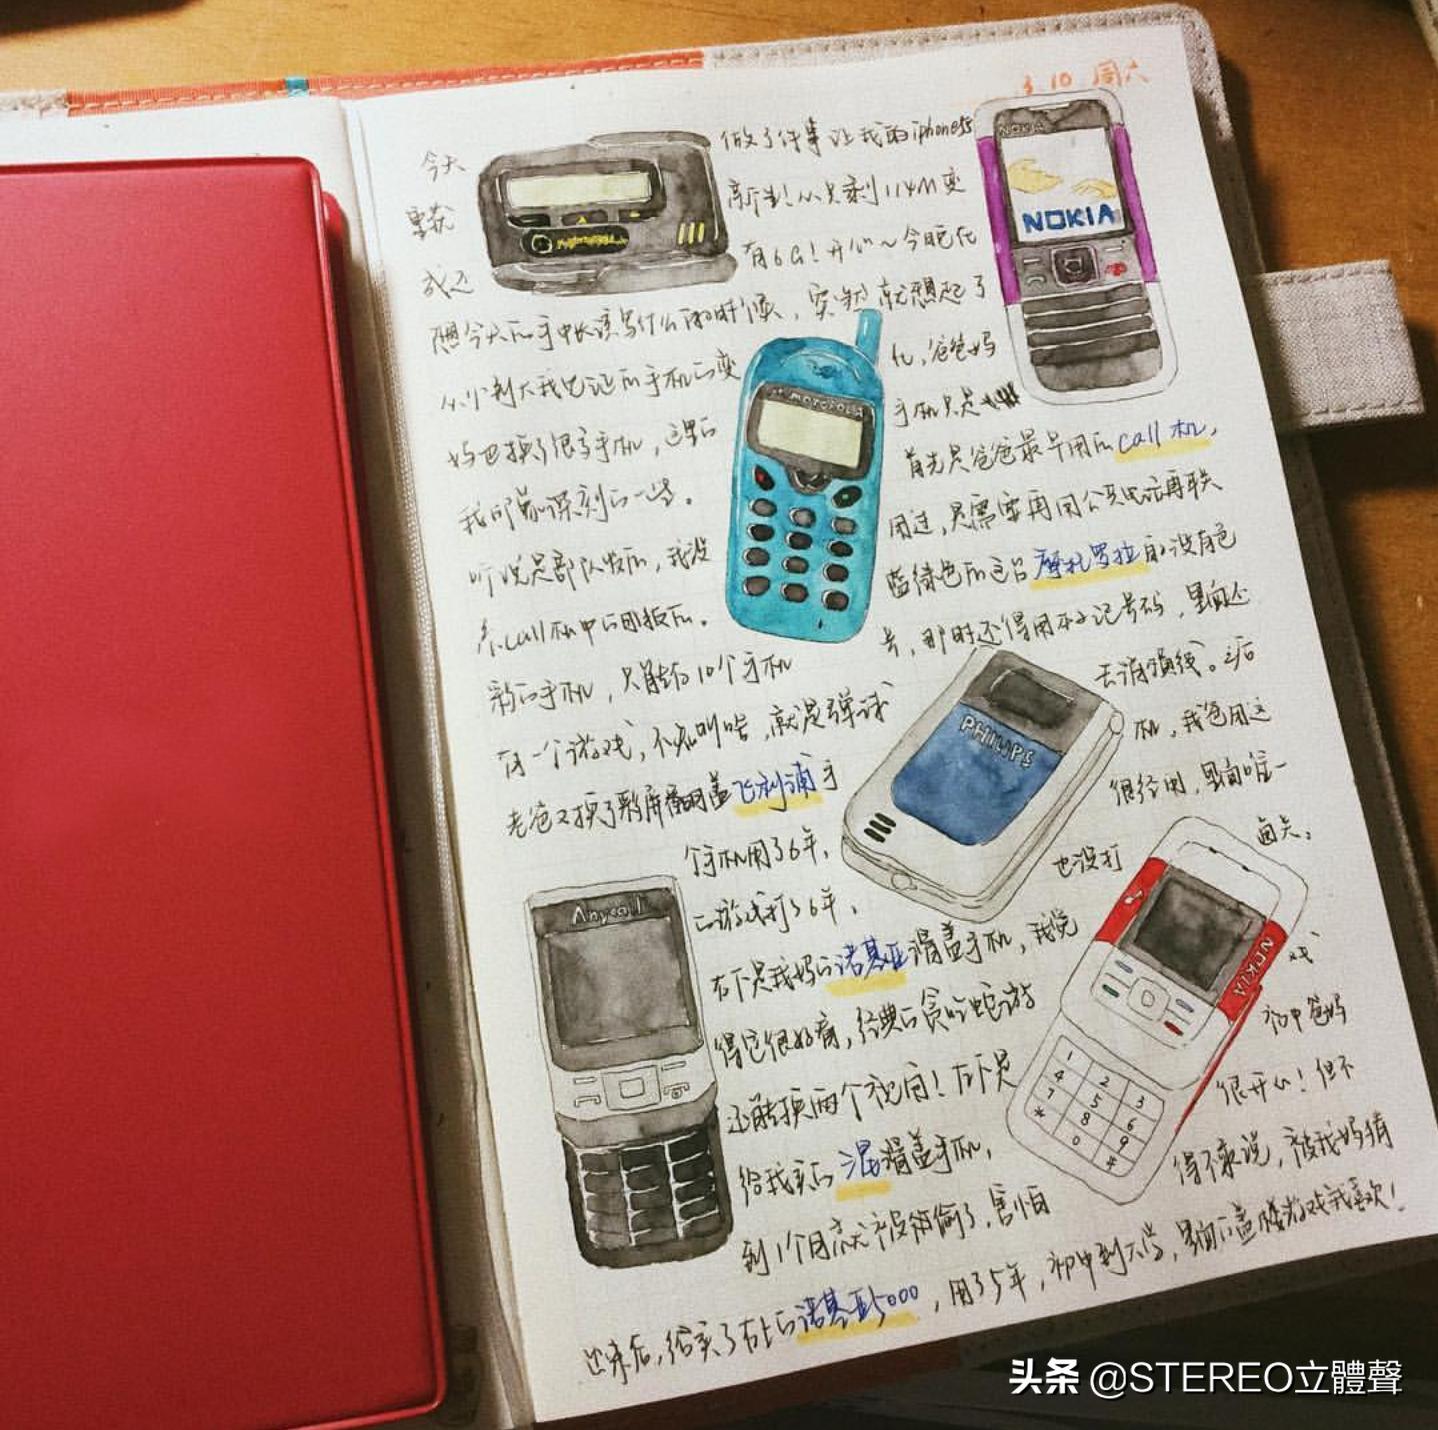 3.10 周六
今天 做了件事让我的iphone5s
重获 新生!从只剩114M变
成还 有6G!开心~今晚在
想今天的手帐该写什么的时候,突然就想起了
从小到大我见证的手机的变化,爸爸妈
妈也换了很多手机,这里的手机只是
我印象深刻的一些。首先是爸爸最早用的call机,
听说是部队发的,我没用过,是需要再用公共电话再联
系call机中的号码的。蓝绿色的这台摩托罗拉的没有色
彩的手机,只能存10个手机号,那时还得用本子记号码,里面还
有一个游戏,不知叫啥,就是弹球去消损线。之后
老爸又换了彩屏翻盖飞利浦手机,我爸用这
个手机用了6年,很经用,里面唯一
的游戏打了6年,也没打通关。
右下是我妈的诺基亚滑盖手机,我觉
得它很好看,经典的贪吃蛇游戏
还能换两个视角!左下是初中爸妈
给我买的三星滑盖手机,很开心!但不
到1个月就被偷了,害怕得不敢说,被我妈猜
出来后,给买了右上的诺基亚5000,用了5年,初中到大学,里面的盖楼游戏我喜欢!
NOKIA
NOKIA
MOTOROLA
PHILIPS
Anycall
NOKIA
1 2 3
4 5 6
7 8 9
* 0 #
头条 @STEREO立體聲